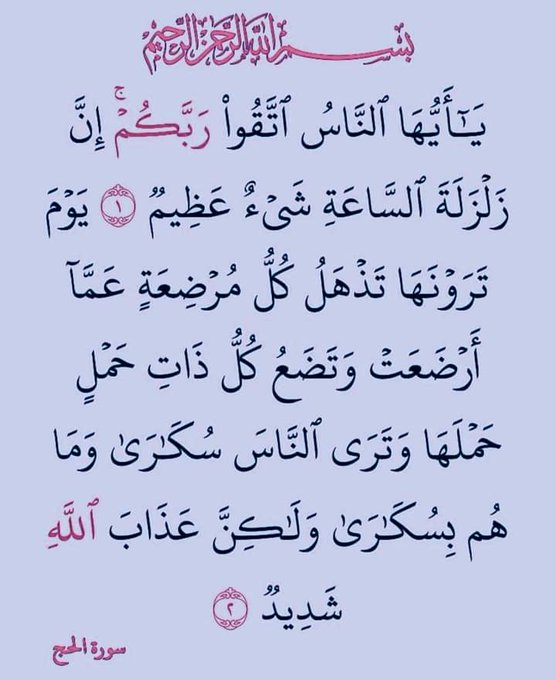 بِسْمِ اللَّهِ الرَّحْمَٰنِ الرَّحِيمِ
يَـٰٓأَيُّهَا ٱلنَّاسُ ٱتَّقُوا۟ رَبَّكُمْ ۚ إِنَّ
زَلْزَلَةَ ٱلسَّاعَةِ شَىْءٌ عَظِيمٌ ١ يَوْمَ
تَرَوْنَهَا تَذْهَلُ كُلُّ مُرْضِعَةٍ عَمَّآ
أَرْضَعَتْ وَتَضَعُ كُلُّ ذَاتِ حَمْلٍ
حَمْلَهَا وَتَرَى ٱلنَّاسَ سُكَـٰرَىٰ وَمَا
هُم بِسُكَـٰرَىٰ وَلَـٰكِنَّ عَذَابَ ٱللَّهِ
شَدِيدٌ ٢
سورة الحج